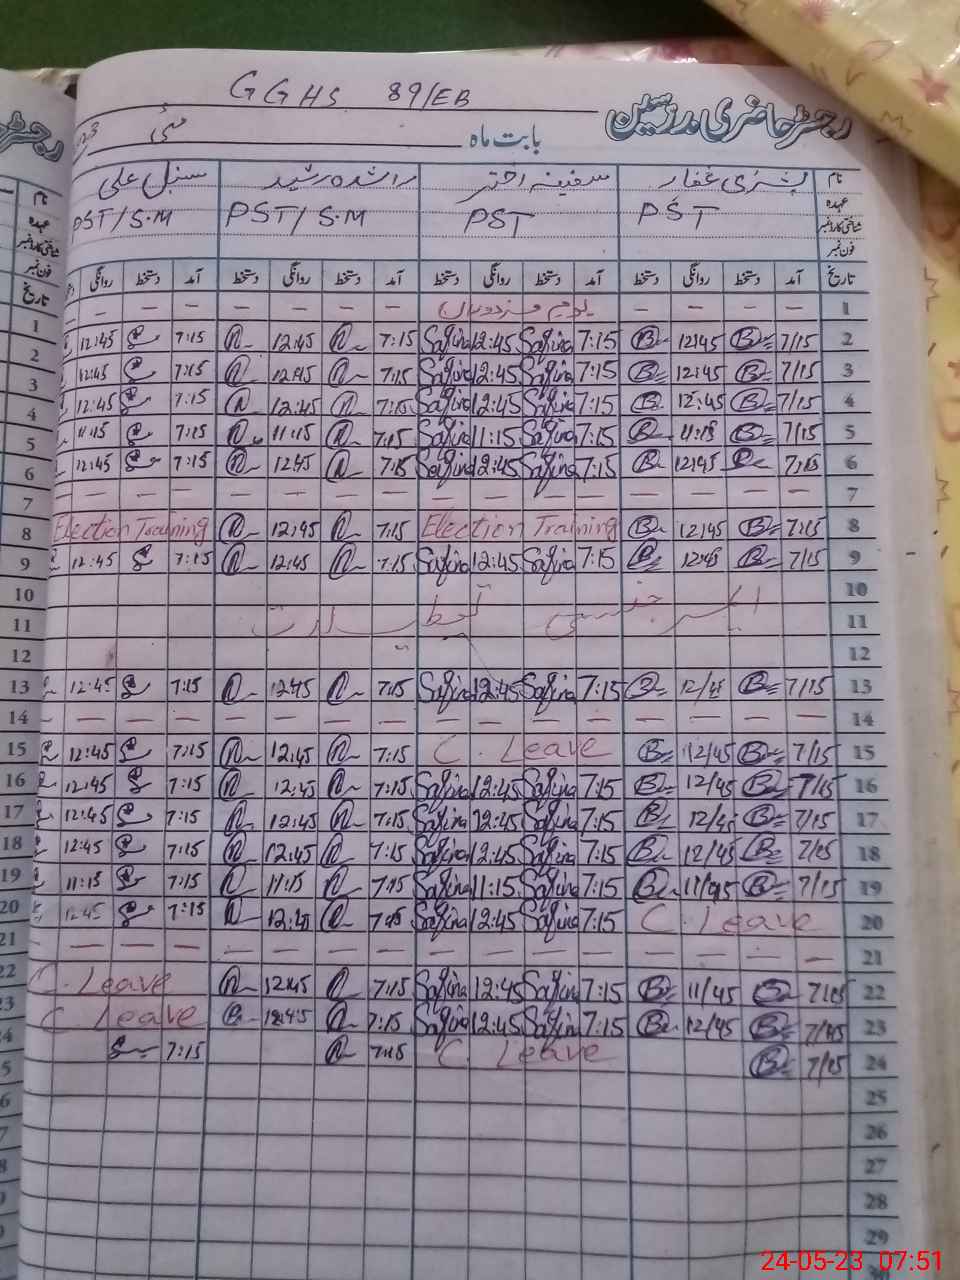 GGHS 89/EB
رجسٹر حاضری مدرسین
بابت ماہ مئی
نام بشریٰ غفار سفینہ اختر راشدہ رشید سنبل علی
عہدہ PST PST PST/S.M PST/S.M
شناختی کارڈ نمبر
فون نمبر
تاریخ آمد دستخط روانگی دستخط آمد دستخط روانگی دستخط آمد دستخط روانگی دستخط آمد دستخط روانگی
1 — — — — یوم مزدوراں — — — — — — —
12:45 7:15 12:45 7:15 Safina 12:45 Safina 7:15 B 12:45 B 7/15 2
12:45 7:15 12:45 7:15 Safina 12:45 Safina 7:15 B 12:45 B 7/15 3
12:45 7:15 12:45 7:15 Safina 12:45 Safina 7:15 B 12:45 B 7/15 4
11:15 7:15 11:15 7:15 Safina 11:15 Safina 7:15 B 11:15 B 7/15 5
12:45 7:15 12:45 7:15 Safina 12:45 Safina 7:15 B 12:45 7:15 6
— — — — — — — — — — — — — — — 7
Election Training 12:45 7:15 Election Training B 12:45 B 7:15 8
12:45 7:15 12:45 7:15 Safina 12:45 Safina 7:15 B 12:45 B 7/15 9
10
ایمرجنسی تعطیلات 11
12
12:45 7:15 12:45 7:15 Safina 12:45 Safina 7:15 12/45 B 7/15 13
— — — — — — — — — — — — — — — 14
12:45 7:15 12:45 7:15 C. Leave B 12/45 B 7/15 15
12:45 7:15 12:45 7:15 Safina 12:45 Safina 7:15 B 12/45 B 7/15 16
12:45 7:15 12:45 7:15 Safina 12:45 Safina 7:15 B 12/45 B 7/15 17
12:45 7:15 12:45 7:15 Safina 12:45 Safina 7:15 B 12/45 B 7/15 18
11:15 7:15 11:15 7:15 Safina 11:15 Safina 7:15 B B 7/15 19
12:45 7:15 12:45 7:15 Safina 12:45 Safina 7:15 C. Leave 20
— — — — — — — — — — — — — — — 21
C. Leave 12:45 7:15 Safina 12:45 Safina 7:15 B 11/45 7/15 22
C. Leave 12:45 7:15 Safina 12:45 Safina 7:15 B 12/45 B 7/15 23
7:15 7:15 C. Leave B 7/15 24
25
26
27
28
29
30
24-05-23 07:51